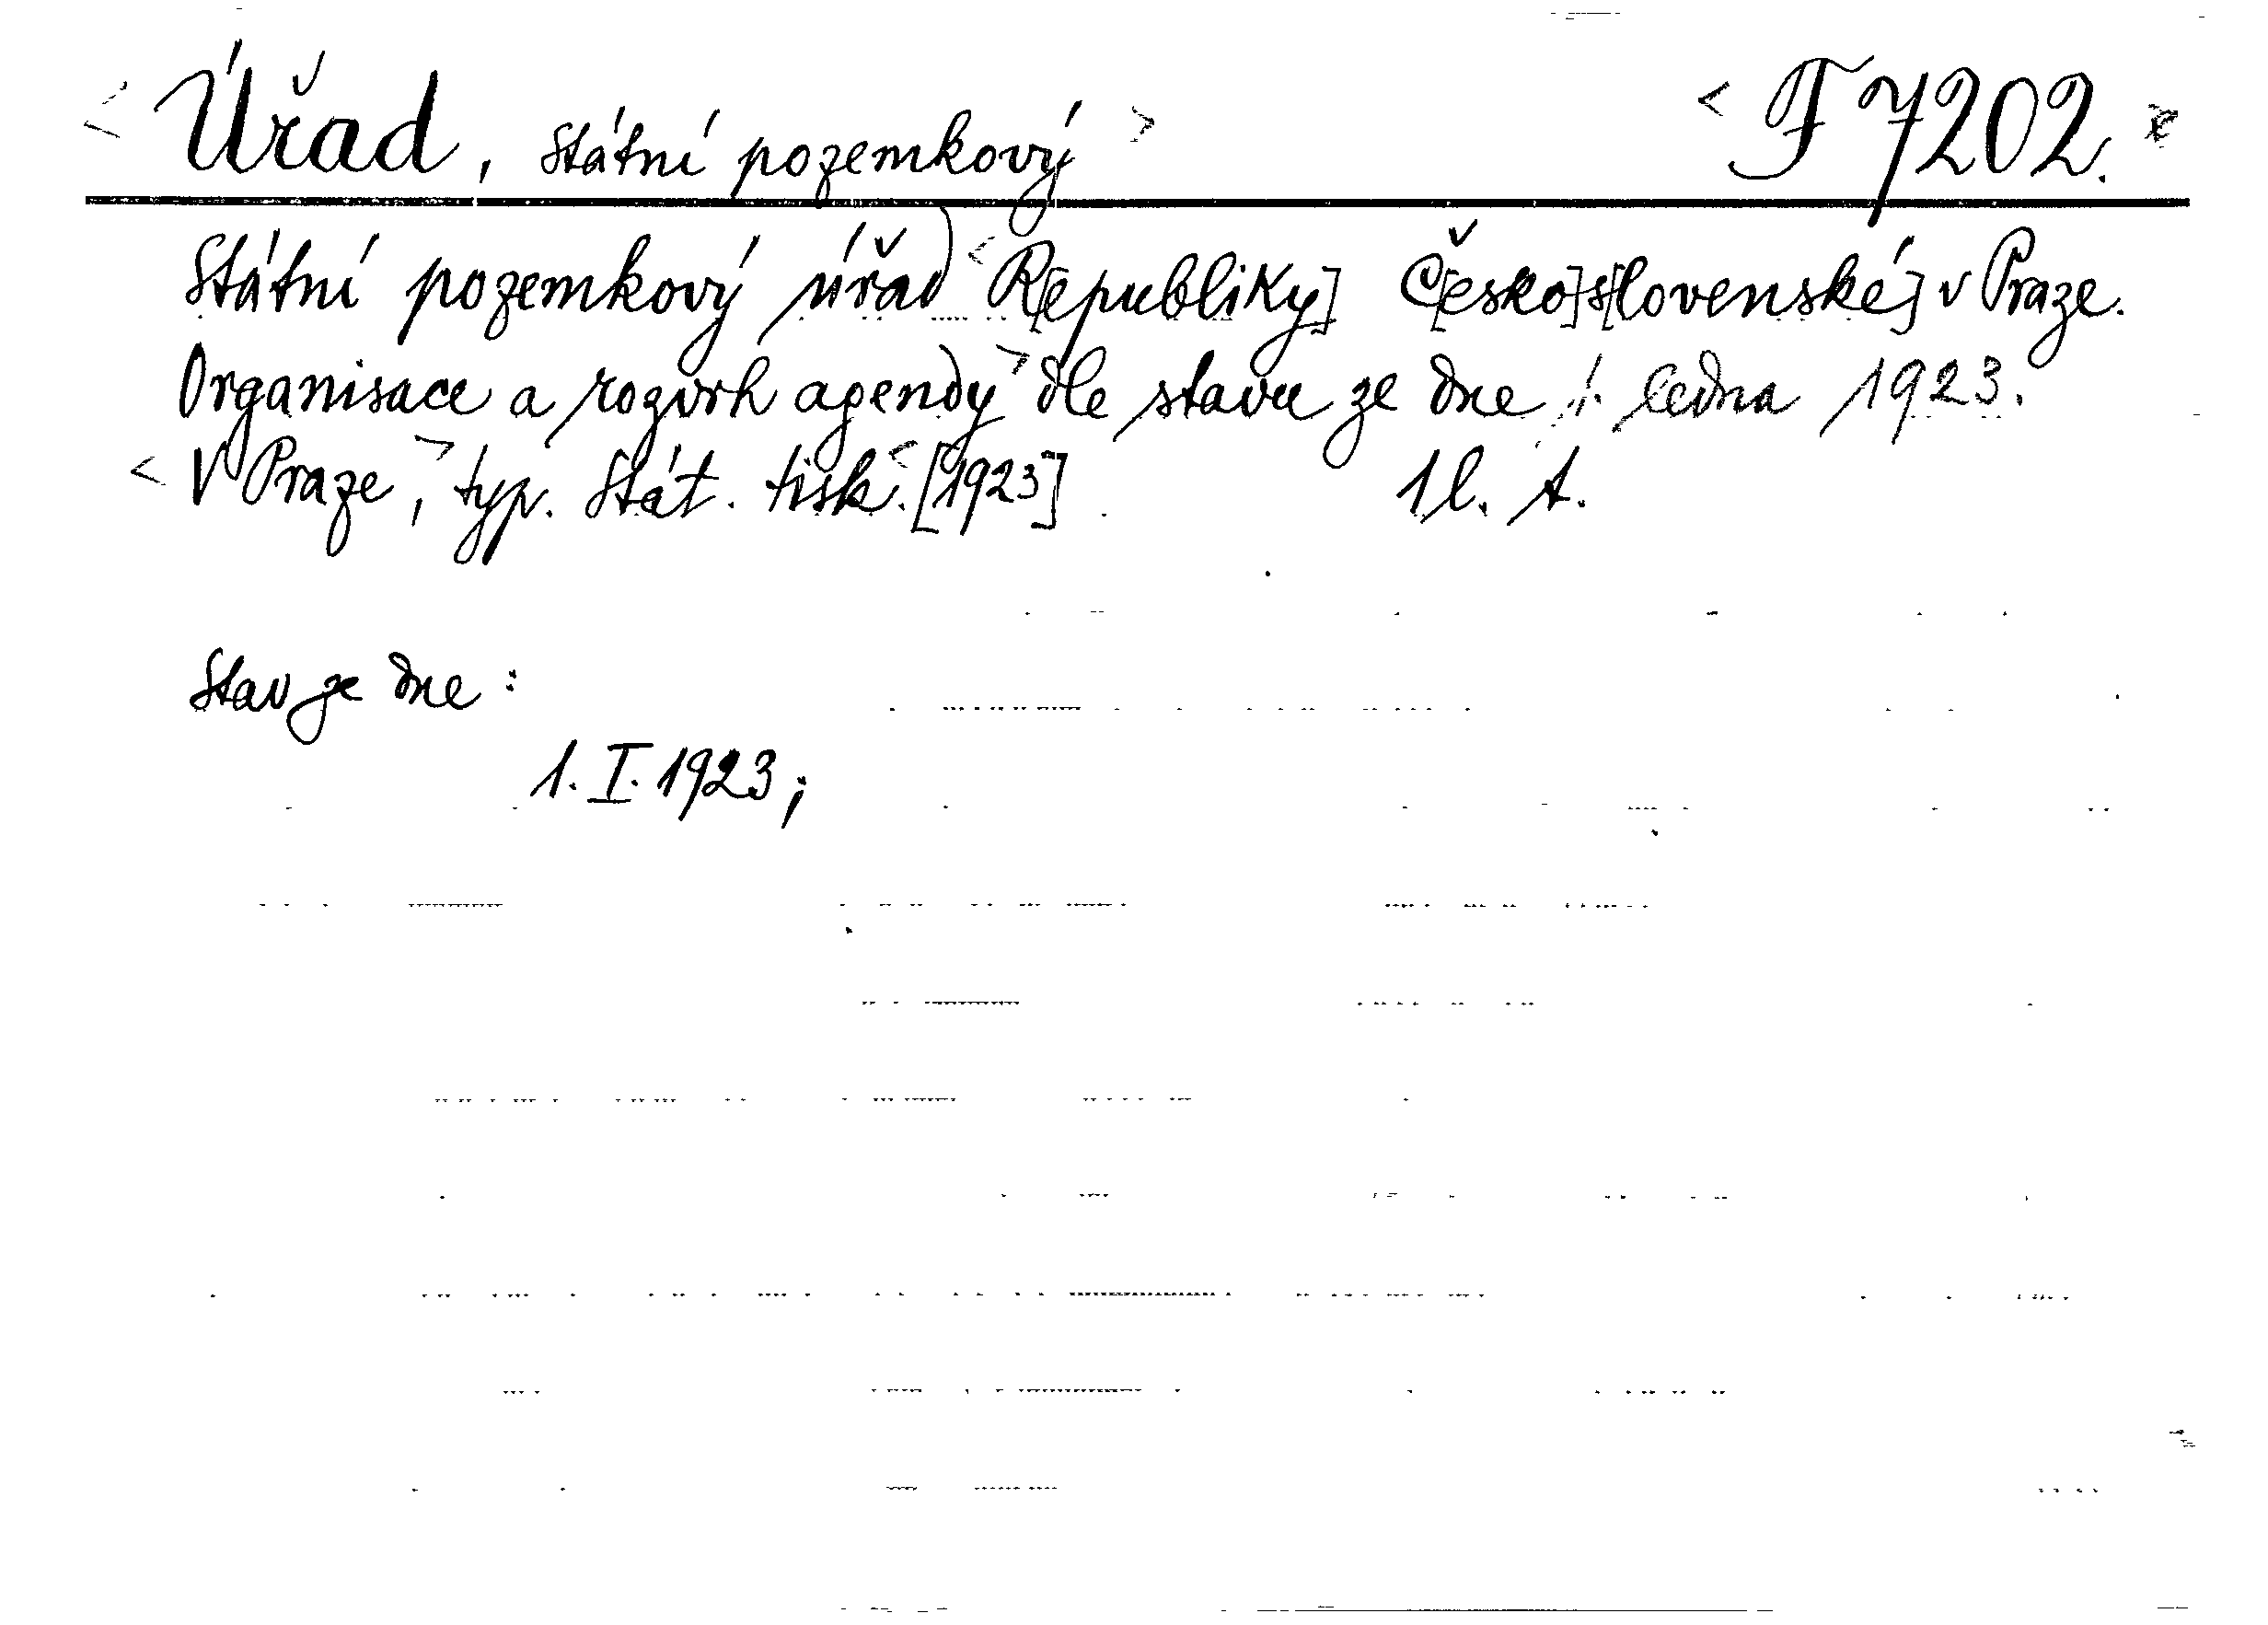 < Úřad, státní pozemkový > < F 7202. >
Státní pozemkový úřad < R[epubliky] Č[esko]s[lovenské] v Praze.
Organisace a rozvrh agendy > dle stavu ze dne 1. ledna 1923.
< V Praze, > typ. Stát. tisk. < [1923] 1 l. A.
Stav ze dne:
1. I. 1923;